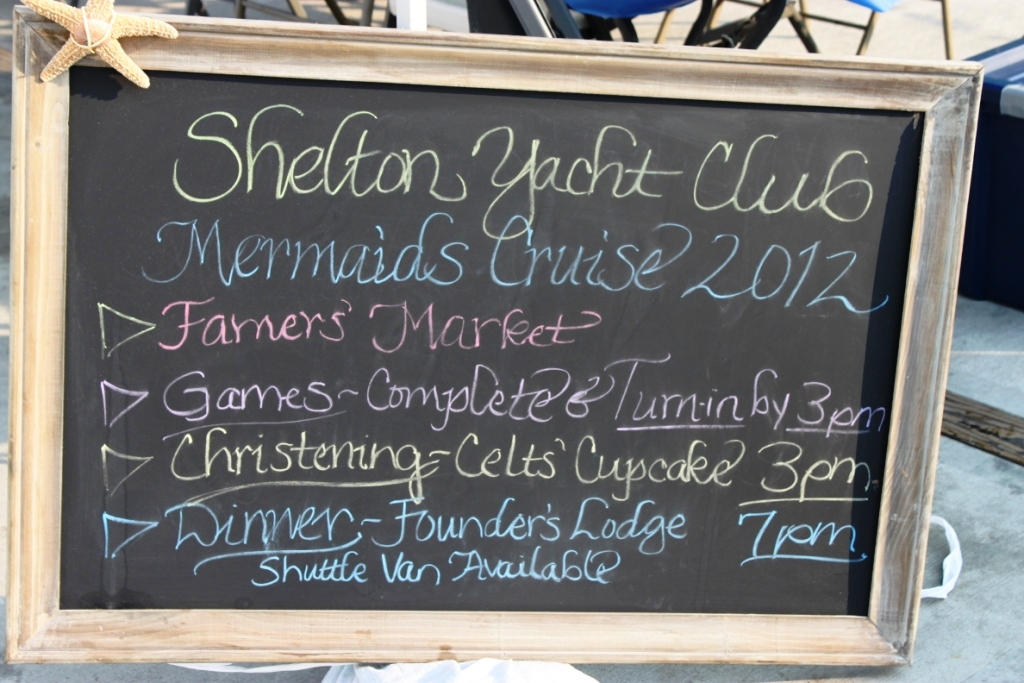 Shelton Yacht Club
Mermaids Cruise 2012
Farmers' Market
Games - Complete & Turn-in by 3pm
Christening - Celts' Cupcake 3pm
Dinner - Founder's Lodge 7pm
Shuttle Van Available